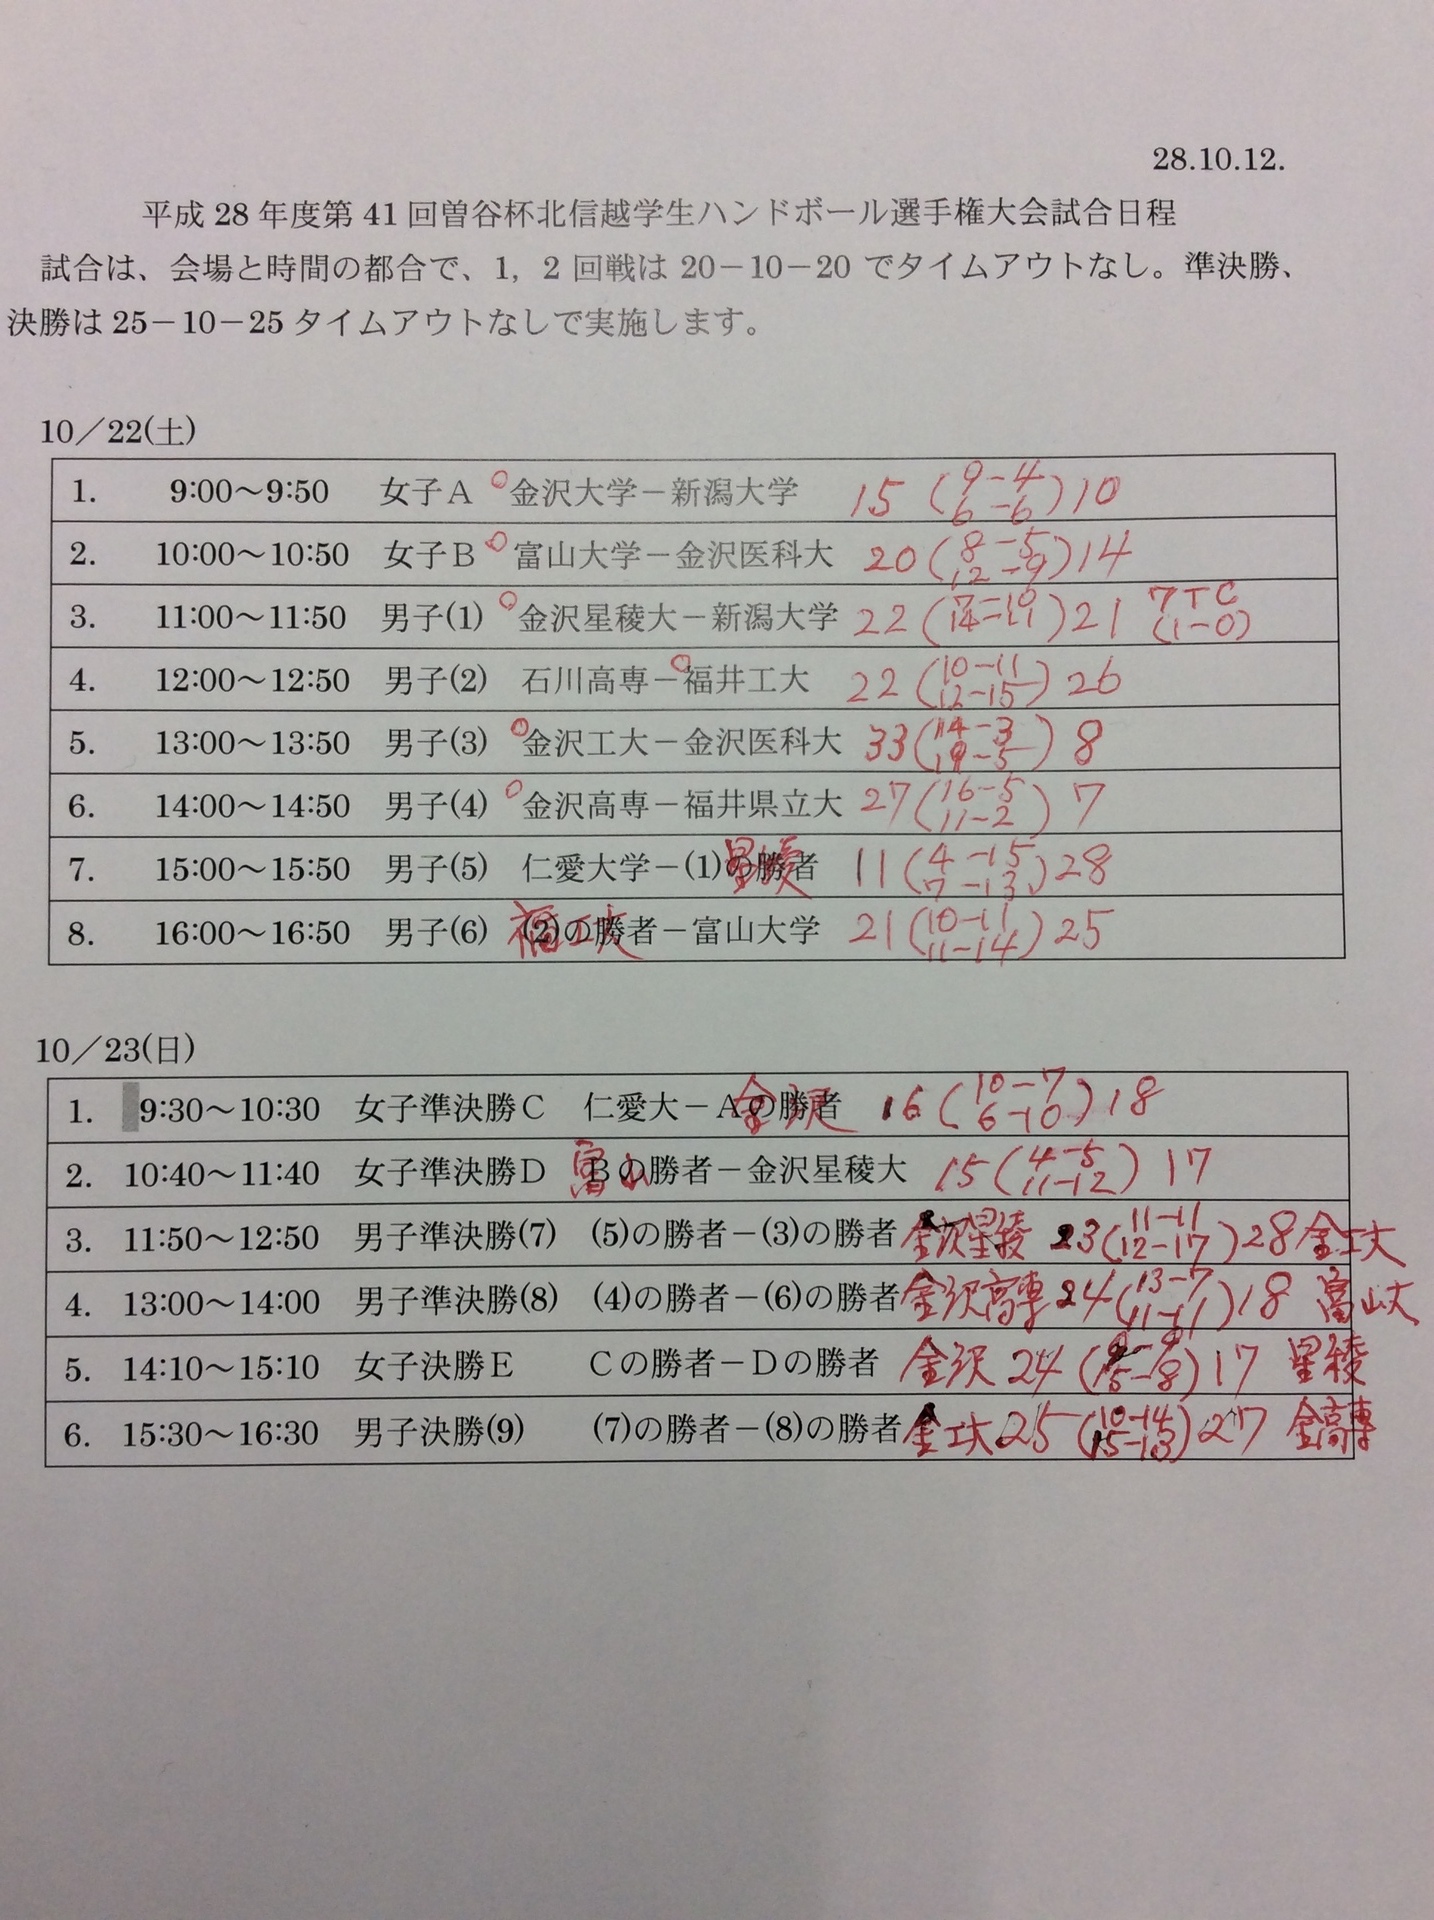 28.10.12.
平成 28 年度第 41 回曽谷杯北信越学生ハンドボール選手権大会試合日程
試合は、会場と時間の都合で、1, 2 回戦は 20−10−20 でタイムアウトなし。準決勝、
決勝は 25−10−25 タイムアウトなしで実施します。
10／22(土)
1. 9:00～9:50 女子A ○金沢大学－新潟大学 15 (9-4 6-6) 10
2. 10:00～10:50 女子B ○富山大学－金沢医科大 20 (8-5 12-9) 14
3. 11:00～11:50 男子(1) ○金沢星稜大－新潟大学 22 (7-10 14-11) 21 7TC (1-0)
4. 12:00～12:50 男子(2) 石川高専－○福井工大 22 (10-11 12-15) 26
5. 13:00～13:50 男子(3) ○金沢工大－金沢医科大 33 (14-3 19-5) 8
6. 14:00～14:50 男子(4) ○金沢高専－福井県立大 27 (16-5 11-2) 7
7. 15:00～15:50 男子(5) 仁愛大学－(1)の勝者 星稜 11 (4-15 7-13) 28
8. 16:00～16:50 男子(6) (2)の勝者－富山大学 福工大 21 (10-11 11-14) 25
10／23(日)
1. 9:30～10:30 女子準決勝C 仁愛大－Aの勝者 金沢 16 (10-7 6-10) 18
2. 10:40～11:40 女子準決勝D Bの勝者－金沢星稜大 富山 15 (4-5 11-12) 17
3. 11:50～12:50 男子準決勝(7) (5)の勝者－(3)の勝者 金沢星稜 23 (11-11 12-17) 28 金工大
4. 13:00～14:00 男子準決勝(8) (4)の勝者－(6)の勝者 金沢高専 24 (13-7 11-11) 18 富山大
5. 14:10～15:10 女子決勝E Cの勝者－Dの勝者 金沢 24 (9-9 15-8) 17 星稜
6. 15:30～16:30 男子決勝(9) (7)の勝者－(8)の勝者 金工大 25 (10-14 15-13) 27 金高専